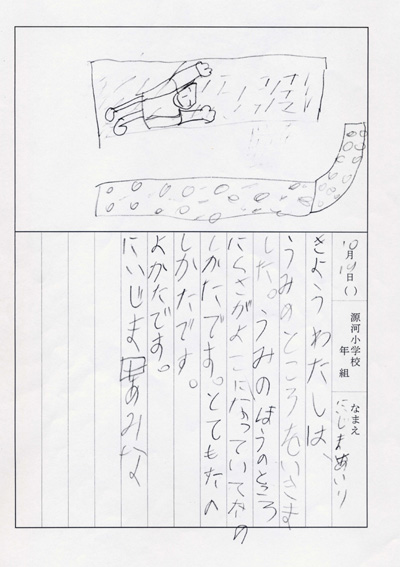 月 日 ( )
源河小学校
年 組
なまえ
きょうわたしは、
うみのところをいきま
した。うみのほうのところ
にくさがよこになっていてたの
しかたです。とてもたの
しかたです。
よかたです。
にいじま あみな